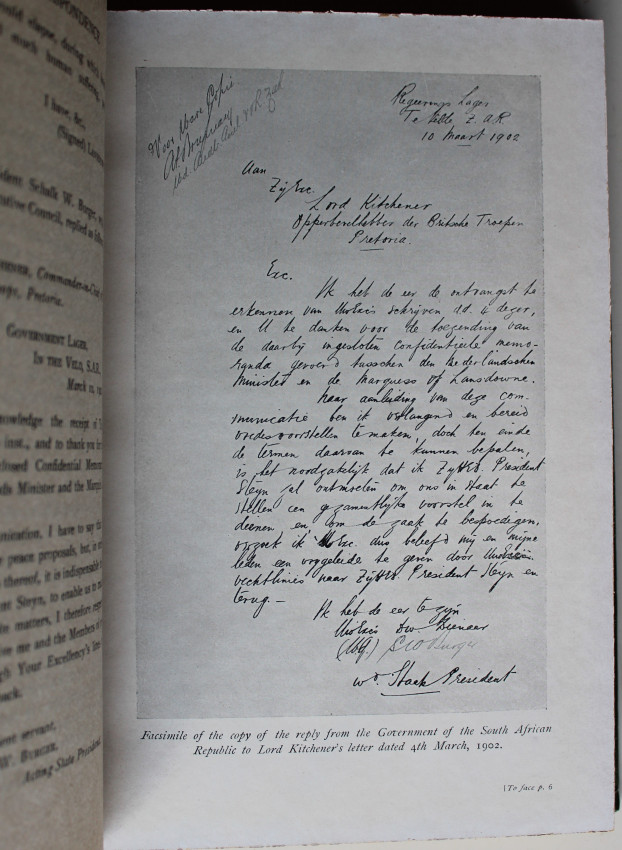 RESPONDENCE
would elapse, during which
much human suffering
I have, &c.,
(Signed)
President Schalk W. Burger,
Executive Council, replied as follows
Commander-in-Chief
Troops, Pretoria.
GOVERNMENT LAGER,
IN THE VELD, S.A.R.
March 10, 19
acknowledge the receipt of
inst., and to thank you
enclosed Confidential Memo
Minister and the Marquis
communication, I have to say
peace proposals, but, in
thereof, it is indispensable
Steyn, to enable us to
matters, I therefore
me and the Members of
Through Your Excellency's lines
back.
servant,
W. BURGER,
Acting State President
Voor Ware Copie
Regeerings Lager
Te Velde Z.A.R.
10 Maart 1902
Aan
ZijExc.
Lord Kitchener
Opperbevelhebber der Britsche Troepen
Pretoria.
Exc.
Ik heb de eer de ontvangst te
erkennen van UwExcs schrijven dd. 4 dezer,
en U te danken voor de toezending van
de daarbij ingesloten confidentieele memo-
randa gevoerd tusschen den Nederlandschen
Minister en de Marquess of Lansdowne.
Naar aanleiding van deze com-
municatie ben ik verlangend en bereid
vredesvoorstellen te maken, doch ten einde
de termen daarvan te kunnen bepalen,
is het noodzakelijk dat ik ZijHEd. President
Steyn zal ontmoeten om ons in staat te
stellen een gezamentlijke voorstel in te
dienen, en, om de zaak te bespoedigen,
verzoek ik UwExc. dus beleefd mij en mijne
leden een vrijgeleide te geven door UwExcs
vechtlinies naar ZijHEd. President Steyn en
terug. —
Ik heb de eer te zijn
UwExcs Dw Dienaar
(Wg.) S W Burger
wd. Staats President
Facsimile of the copy of the reply from the Government of the South African
Republic to Lord Kitchener's letter dated 4th March, 1902.
[To face p. 6